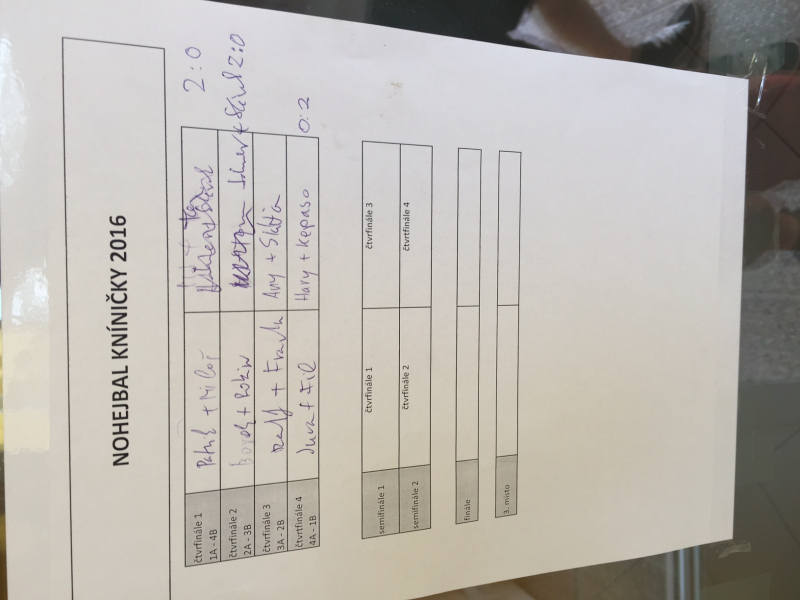 NOHEJBAL KNÍNIČKY 2016
čtvrfinále 1
1A - 4B
Patrik + Miloš
2:0
čtvrtfinále 2
2A - 3B
+ Robin
2:0
čtvrtfinále 3
3A - 2B
+ Franta
Any +
čtvrtfinále 4
4A - 1B
Jura + Fil
Hary + Kepaso
0:2
semifinále 1
čtvrfinále 1
čtvrfinále 3
semifinále 2
čtvrtfinále 2
čtvrtfinále 4
finále
3. místo